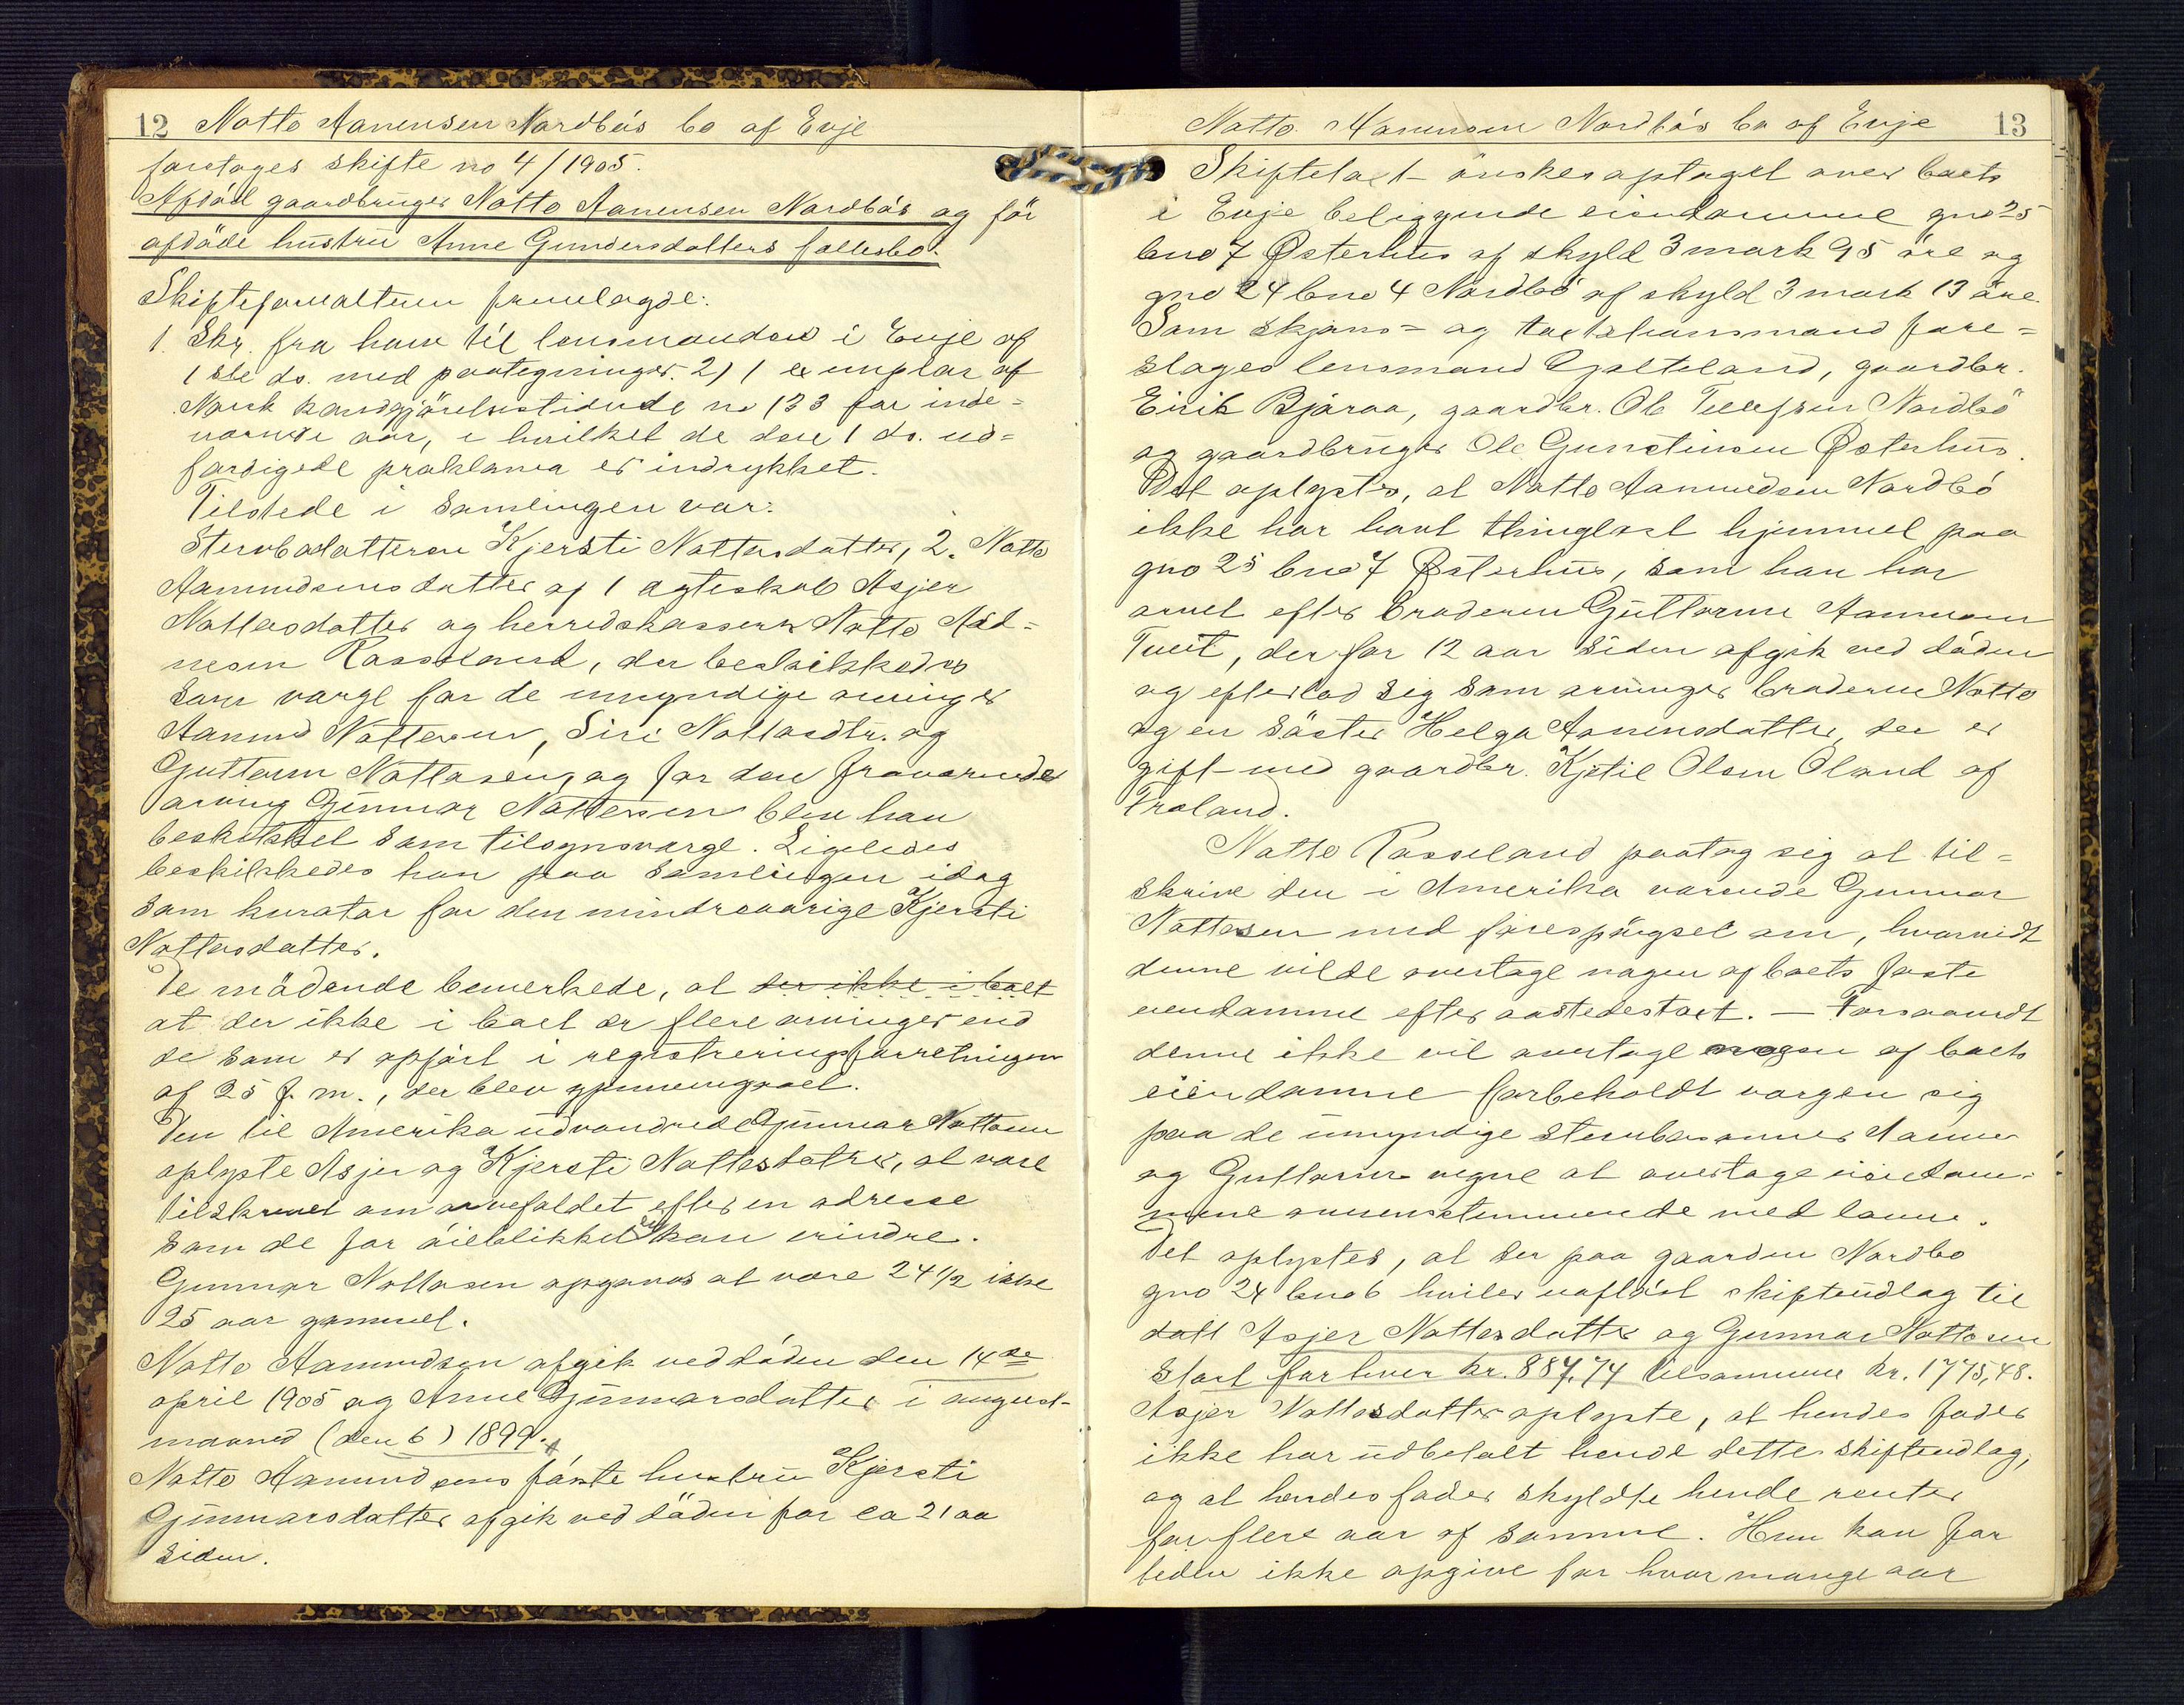 12 Notto Aanensen Nordbös bo af Evje
foretages skifte no 4/1905.
Afdöd gaardbruger Notto Aanensen Nordbös og för
afdöde hustru Anne Gundersdatters fællesbo.
Skifteforvalteren fremlagde:
1. Skr. fra ham til lensmanden i Evje af
1ste ds. med paategninger. 2) 1 exemplar af
Norsk kundgjörelsestidende no 133 for inde=
værende aar, i hvilket de den 1 ds. ud=
færdigede proklama er indrykket.
Tilstede i samlingen var:
Stervbodatteren Kjersti Nottosdatter, 2. Notto
Aamundsens datter af 1 ægteskab Asjer
Nottosdatter og herredskasserer Notto
Rosseland, der beskikkedes
som værge for de umyndige arvinger
Aanund Nottesen, Siri Nottosdtr. og
Guttorm Nottosen, og for den fraværende
arving Gunnar Nottesen blev han
beskikket som tilsynsværge. Ligeledes
beskikkedes han paa samlingen idag
som kurator for den mindreaarige Kjersti
Nottosdatter.
De mödende bemerkede, at der ikke i boet
at der ikke i boet er flere arvinger end
de som er opfört i registreringsforretningen
af 25 f. m., der blev gjennemgaaet.
Den til Amerika udvandrede Gunnar Nottosen
oplyste Asjer og Kjersti Nottosdatter, at være
tilskrevet om arvefaldet efter en adresse
som de for öieblikket ei kan erindre.
Gunnar Nottosen opgaves at være 24 1/2 ikke
25 aar gammel.
Notto Aamundsen afgik ved döden den 14de
april 1905 og Anne Gunnarsdatter i august
maaned (den 6) 1899.
Notto Aamundsens förste hustru Kjersti
Gunnarsdatter afgik ved döden for ca 21 aa
siden.
Notto Aanensen Nordbös bo af Evje 13
Skiftetaxt önskes optaget over boets
i Evje beliggende eiendomme gno 25
bno 7 Østerhus af skyld 3 mark 95 öre og
gno 24 bno 4 Nordbö af skyld 3 mark 13 öre.
Som skjöns= og taxtationsmænd fore=
slages lensmand Galteland, gaardbr.
Eirik Bjoraa, gaardbr. Ole Tellefsen Nordbö
og gaardbruger Ole Gunstinsen Østerhus.
Det oplystes, at Notto Aamundsen Nordbö
ikke har havt thinglæst hjemmel paa
gno 25 bno 7 Østerhus, som han har
arvet efter broderen Guttorm Aanensen
Tveit, der for 12 aar siden afgik ved döden
og efterlod sig som arvinger broderen Notto
og en söster Helga Aanensdatter, der er
gift med gaardbr. Kjetil Olsen Oland af
Froland.
Notto Rosseland paatog sig at til=
skrive den i Amerika værende Gunnar
Nottosen med forespörgsel om, hvorvidt
denne vilde overtage nogen af boets faste
eiendomme efter aastedestaxt. — Forsaavidt
denne ikke vil overtage nogen af boets
eiendomme forbeholdt værgen sig
paa de umyndige stervbosönner Aanen
og Guttorms vegne at overtage eiendom=
mene overensstemmende med loven.
Det oplystes, at der paa gaarden Nordbö
gno 24 bno 6 hviler uaflöst skifteudlæg til
datt Asjer Nottosdatter og Gunnar Nottosen
stort for hver kr. 887,74 tilsammen kr. 1775,48.
Asjer Nottosdatter oplyste, at hendes fader
ikke har udbetalt hende dette skifteudlæg,
og at hendes fader skyldte hende renter
for flere aar af samme. Hun kan for
tiden ikke opgive for hvor mange aar